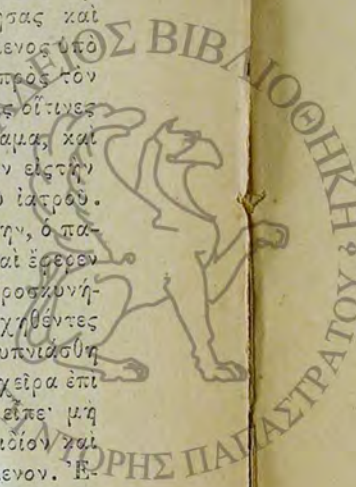 ησας καὶ
μενος ὑπὸ
πρὸς τὸν
ς οἵτινες
αμα, καὶ
ν εἰςτὴν
υ ἰατροῦ.
ην, ὁ πα-
αὶ ἔφερεν
ροσκυνή-
χηθέντες
υπνιάσθη
χεῖρα ἐπὶ
εἶπε· μὴ
ιδίον καὶ
μενον. Ἐ-
ΛΕΙΟΣ ΒΙΒΛΙΟΘΗΚΗ
ΑΝΤΩΡΗΣ ΠΑΠΑΣΤΡΑΤΟΥ